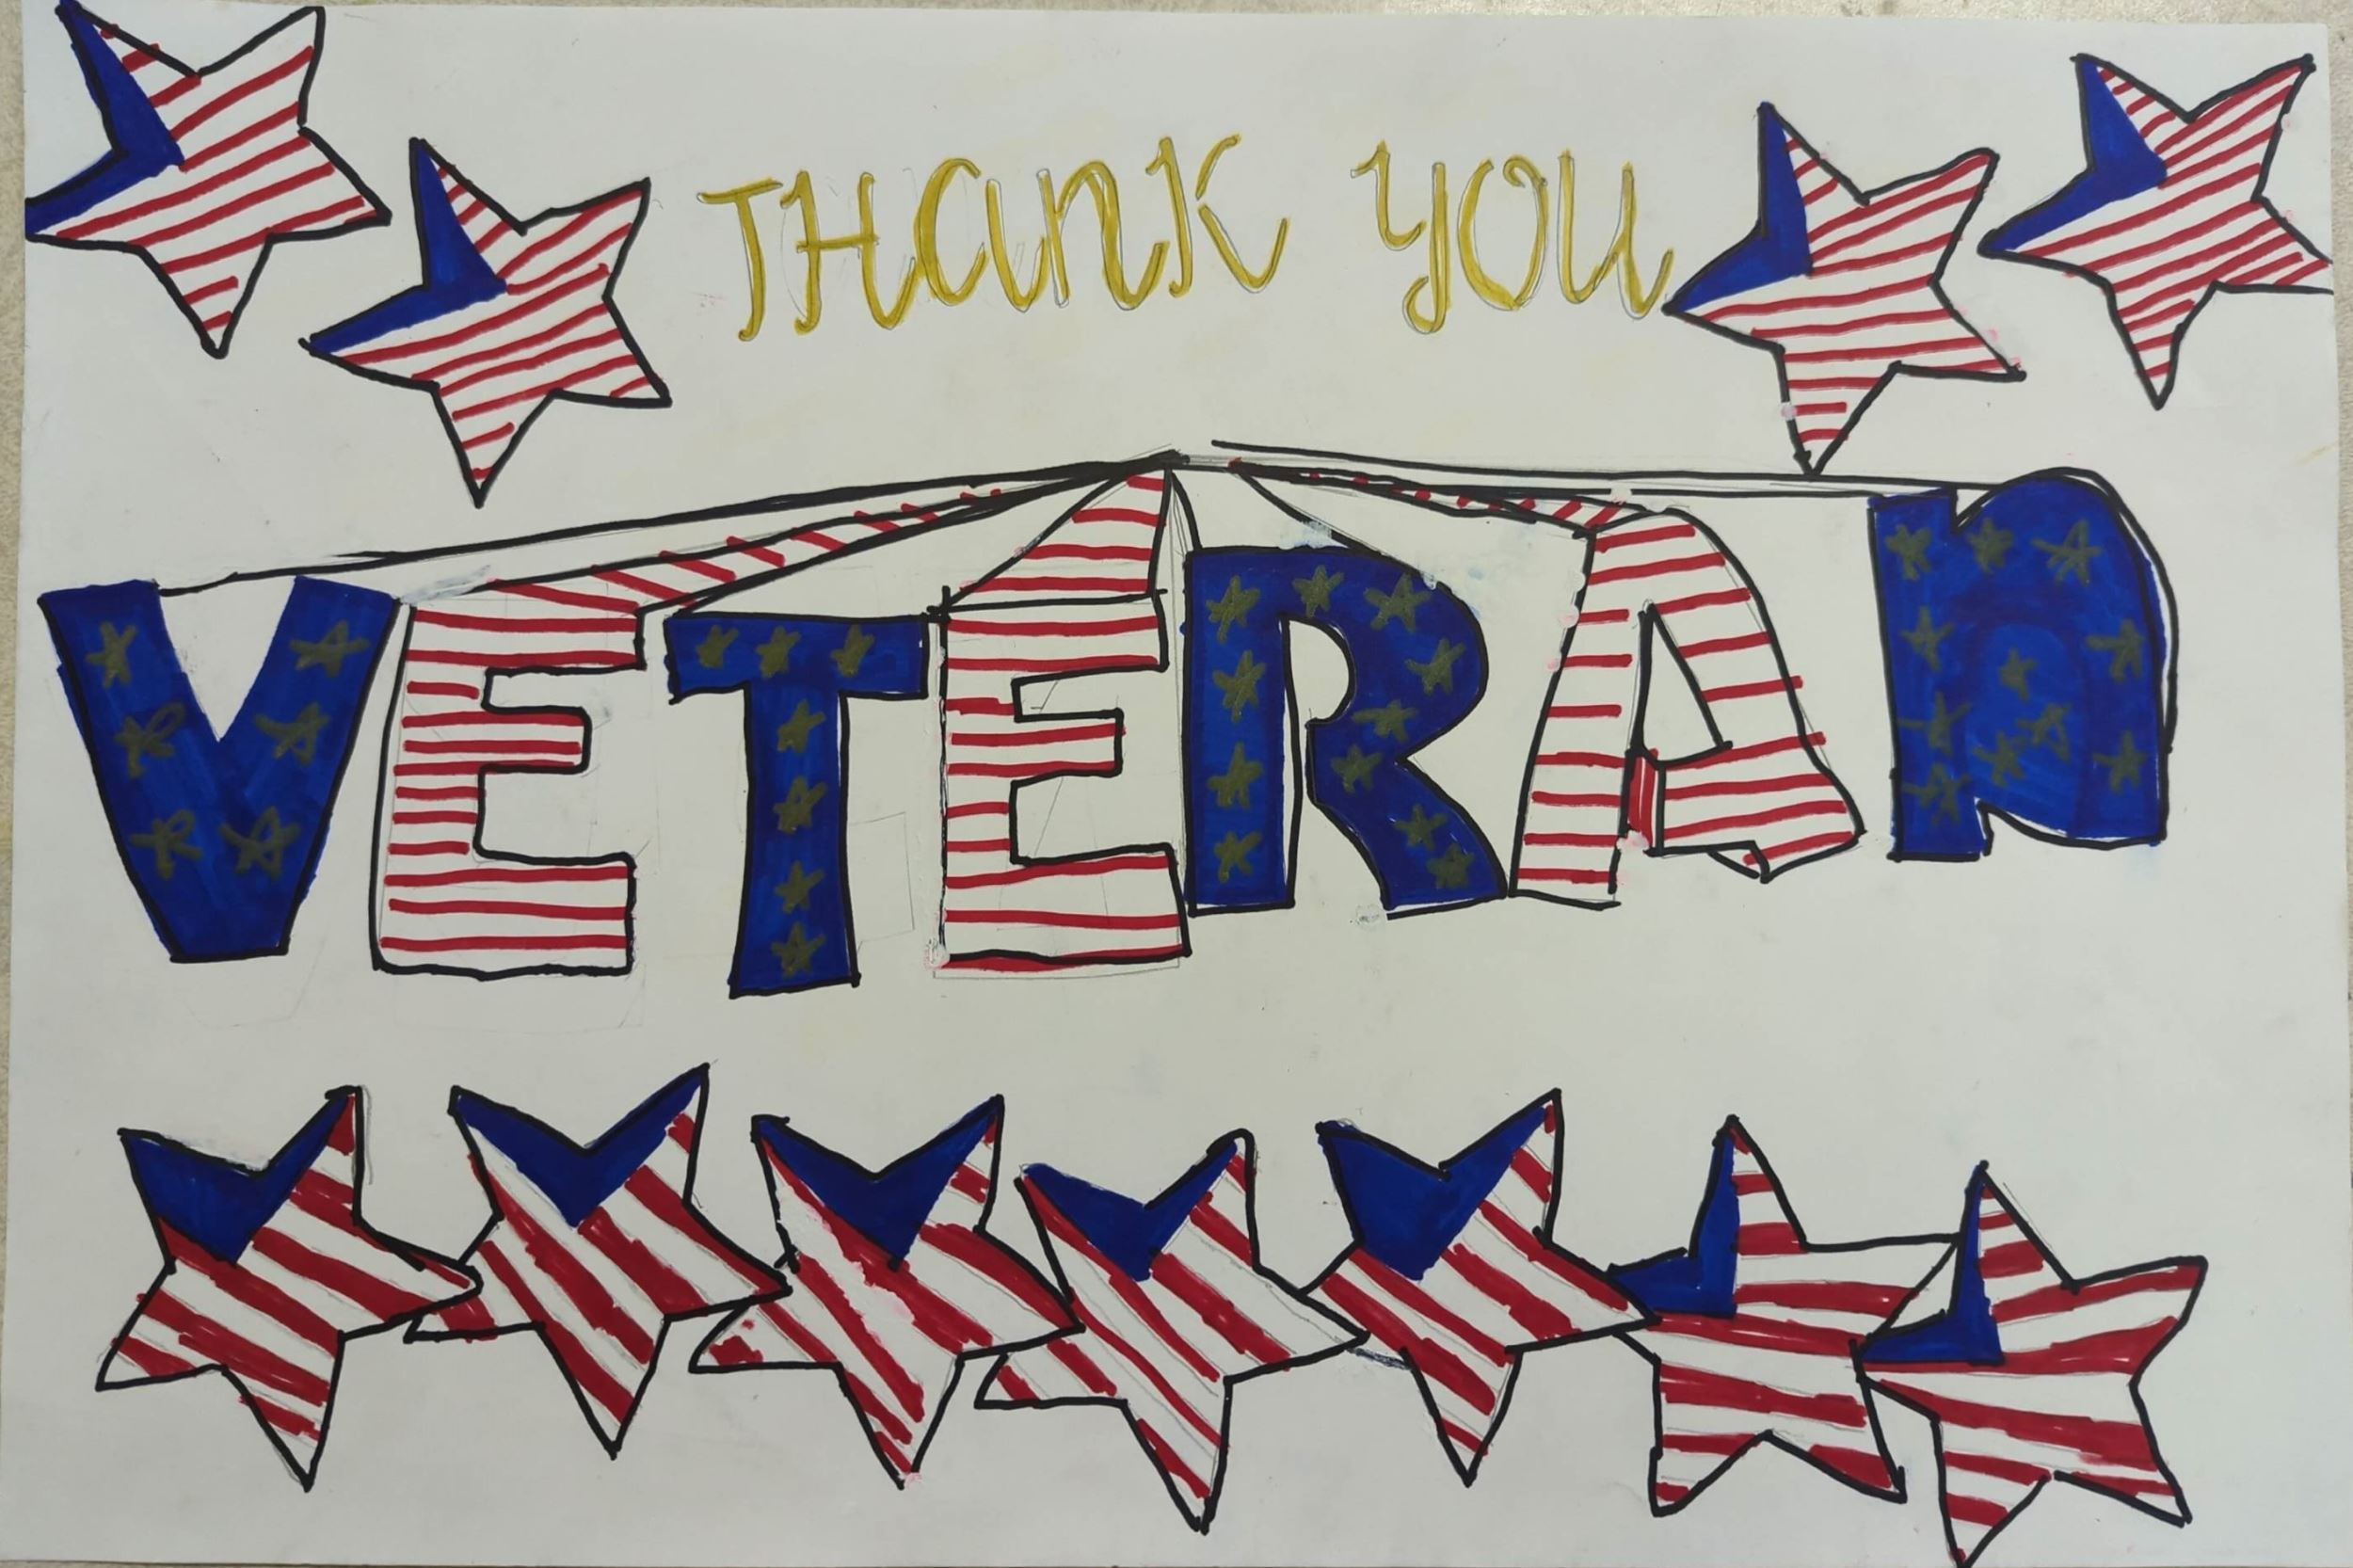 THanK you
VETERAn